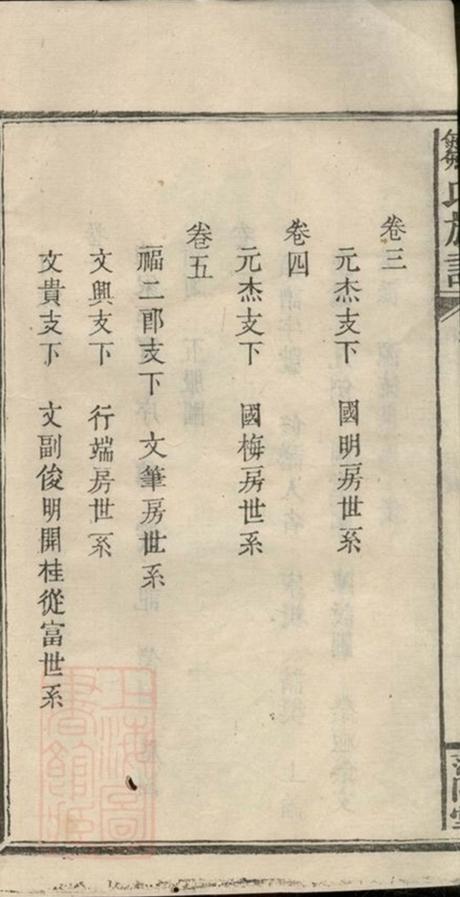 氏族譜
卷三
元杰支下 國明房世系
卷四
元杰支下 國梅房世系
卷五
福二郎支下 文筆房世系
文興支下 行端房世系
文貴支下 文副俊明開桂從富世系
上海圖書館藏